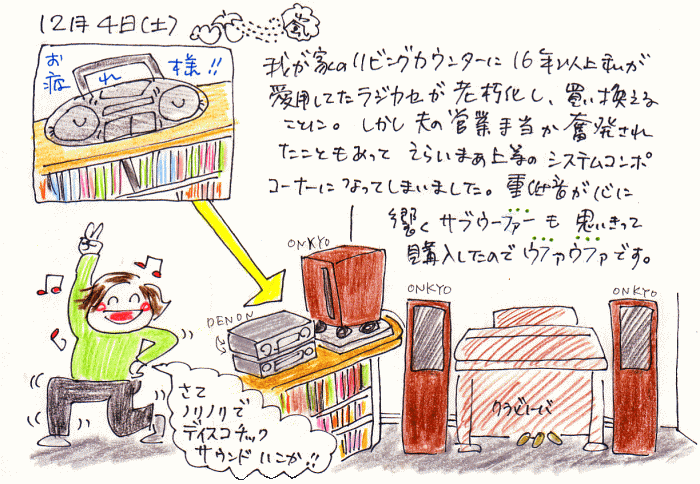 12月4日(土)
お疲れ様!!
我が家のリビングカウンターに16年以上私が
愛用してたラジカセが老朽化し、買い換える
ことに。しかし夫の営業手当が奮発され
たこともあって えらいまあ上等のシステムコンポ
コーナーになってしまいました。重低音が心に
響くサブウーファーも思いきって
購入したのでウファウファです。
ONKYO
DENON
ONKYO
ONKYO
クラビノーバ
さて
ノリノリで
ディスコチック
サウンドいこか!!